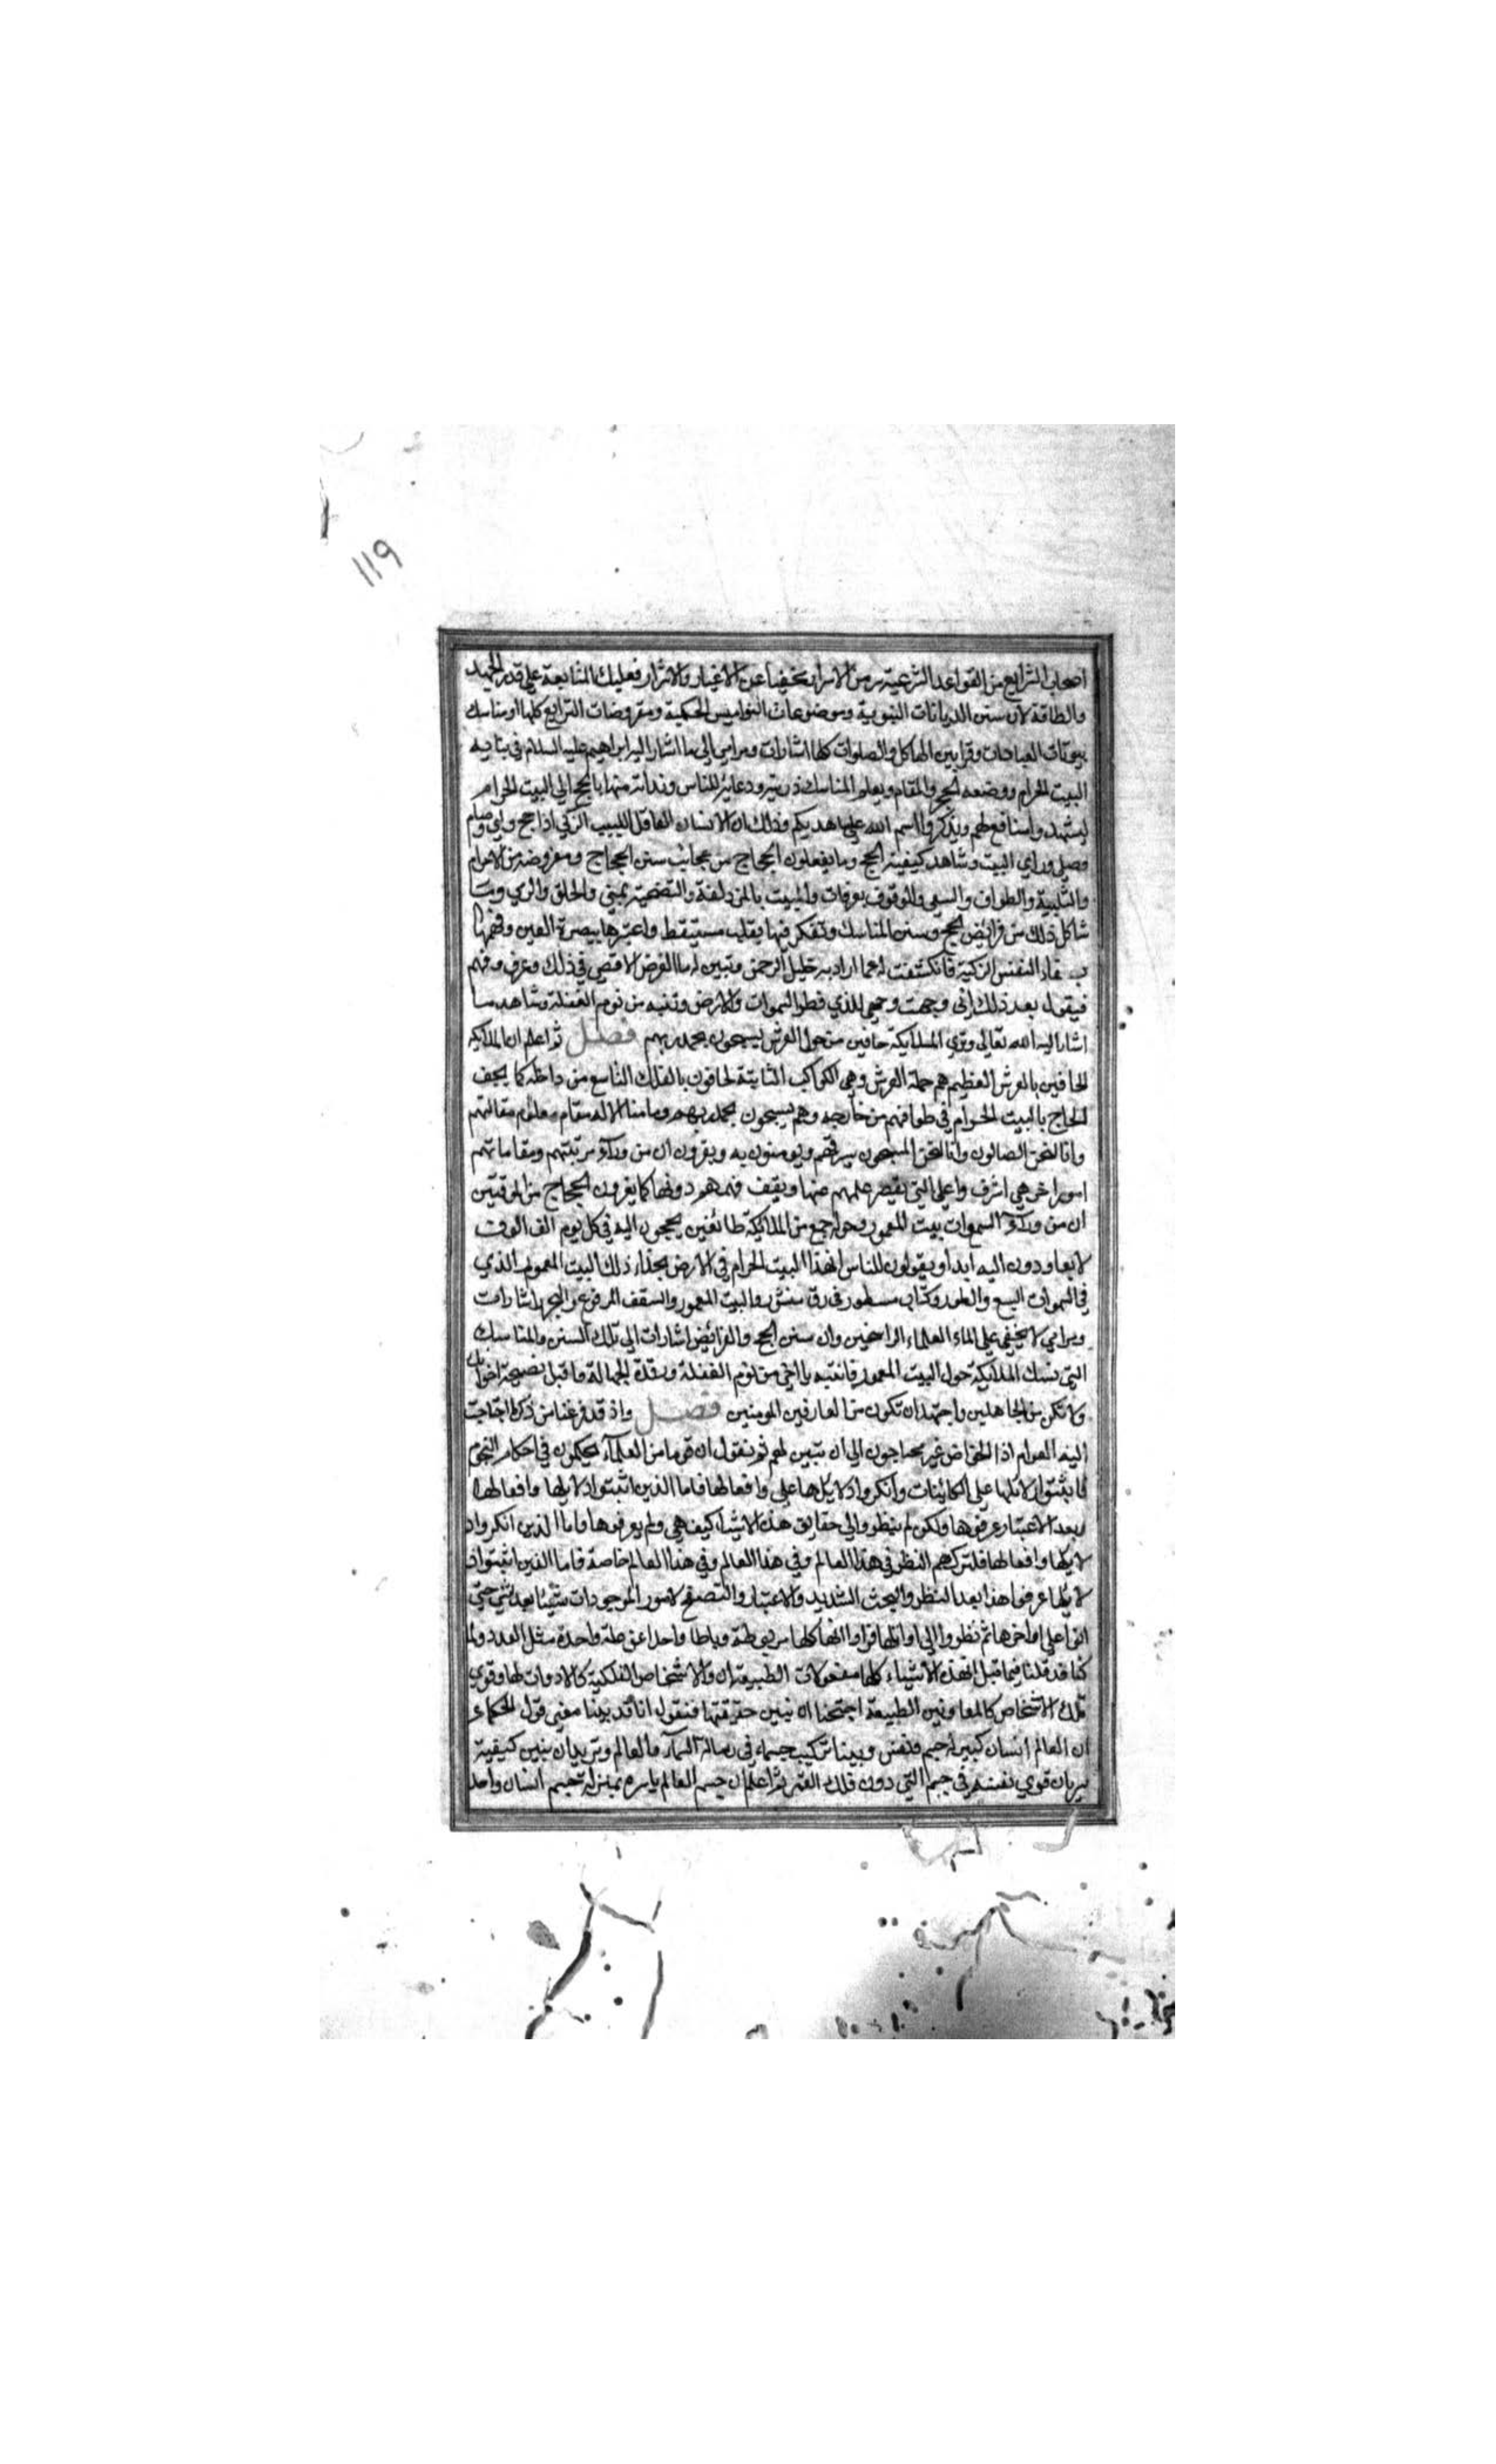 ١١٩
اصحاب الشرايع من القواعد الشرعية رمز الاسرار تخفيا عن الاغيار والاشرار فعليك بالمتابعة على قدر الجهد
والطاقة لان سنن الديانات النبوية وموضوعات النواميس الحكمية ومفروضات الشرايع كلها او مناسك
بيوتات العبادات وقرابين الهياكل والصلوات كلها اشارات ومرامي الى ما اشار اليه ابراهيم عليه السلام في بنايه
البيت الحرام ووضعه الحجر والمقام وتعليم المناسك ذريته ودعائه للناس وندائه منها بالحج الى البيت الحرام
ليشهدوا منافع لهم ويذكروا اسم الله على ما هديكم وذلك ان الانسان العاقل اللبيب الزكي اذا حج ولبى وصام
وصلى وراى البيت وشاهد كيفية الحج وما يفعلون الحجاج من عجائب سنن الحجاج ومفروضه من الاحرام
والتلبية والطواف والسعى والوقوف بعرفات والمبيت بالمزدلفة والتضحية بمنى والحلق والرمي وما
شاكل ذلك من فرائض الحج وسنن المناسك وتفكر فيها بقلب مستيقظ واعتبرها ببصيرة العين وفهمها
النفس الزكية فانكشفت له ما اراد به خليل الرحمن وتبين له ما الغرض الاقصى في ذلك وعرف وفهم
فيقول بعد ذلك انى وجهت وجهي للذي فطر السموات والارض وتنبه من نوم الغفلة وشاهد ما
اشار اليه الله تعالى وترى الملايكة حافين من حول العرش يسبحون بحمد ربهم فصل ثم اعلم ان الملايكة
الحافين بالعرش العظيم هم حملة العرش وهى الكواكب الثابتة لحافون بالفلك التاسع من داخله كما يحف
الحاج بالبيت الحرام في طوافهم من خارجه وهم يسبحون بحمد ربهم وما منا الا له مقام معلوم مقالتهم
وانا لنحن الصافون وانا لنحن المسبحون ويومنون به ويقرون ان من ورآء مرتبتهم ومقاماتهم
امور اخر هي اشرف واعلى التي يقصر علمهم عنها ويقف فهمهم دونها كما يقرون الحجاج من الموقنين
ان من ورآء السموات بيت المعمور وحوله جمع من الملايكة طائفين يحجون اليه في كل يوم الف الوف
لا يعاودون اليه ابدا ويقولون للناس ان هذا البيت الحرام في الارض بحذاء ذلك البيت المعمور الذي
في السموات السبع والطور وكتاب مسطور في رق منشور والبيت المعمور والسقف المرفوع والبحر اشارات
ومرامي لا يخفى على العلماء الراسخين وان سنن الحج والفرائض اشارات الى تلك السنن والمناسك
التي نسك الملايكة حول البيت المعمور فانتبه يا اخي من نوم الغفلة ورقدة الجهالة فاقبل نصيحة اخوانك
ولا تكن من الجاهلين واجتهد ان تكون من العارفين المومنين فصل واذ قد فرغنا من ذكر ما احتاجت
اليه العوام اذا الخواص غير محتاجون الى ان نتبين لهم ثم نقول ان قوما من العلمآء يحكمون في احكام النجوم
فاثبتوا دلائلها على الكائنات وانكروا دلايلها وافعالها فاما الذين اثبتوا دلايلها وافعالها
بعد الاعتبار عرفوها ولكن لم ينظروا الى حقايق هذه الاشيا كيف هى ولم يعرفوها واما الذين انكروا د
لايلها وافعالها فلتركهم النظر في هذا العالم وفي هذا العالم وفي هذا العالم خاصة فاما الذين اثبتوا د
لايلها عرفوا هذا بعد النظر والبحث الشديد والاعتبار والتصفح لامور الموجودات شيئا بعد شي حتى
اتوا على اواخرها ثم نظروا الى اوائلها فراوا انها كلها مربوطة رباطا واحدا عن علة واحدة مثل العدد ولما
كنا قد قلنا فيما قبل ان هذه الاشياء كلها مفعولات الطبيعة ان والاشخاص الفلكية كالادوات لها وقوى
تلك الاشخاص كالمعاونين الطبيعة احتجنا ان نبين حقيقتها فنقول انا قد بينا معنى قول الحكماء
ان العالم انسان كبير له جسم ونفس وبينا تركيب جسمه في رسالة السمآء والعالم ونريد ان نبين كيفية
سريان قوى نفسه في جسم التي دون فلك القمر ثم اعلم ان جسم العالم باسره بمنزلة جسم انسان واحد